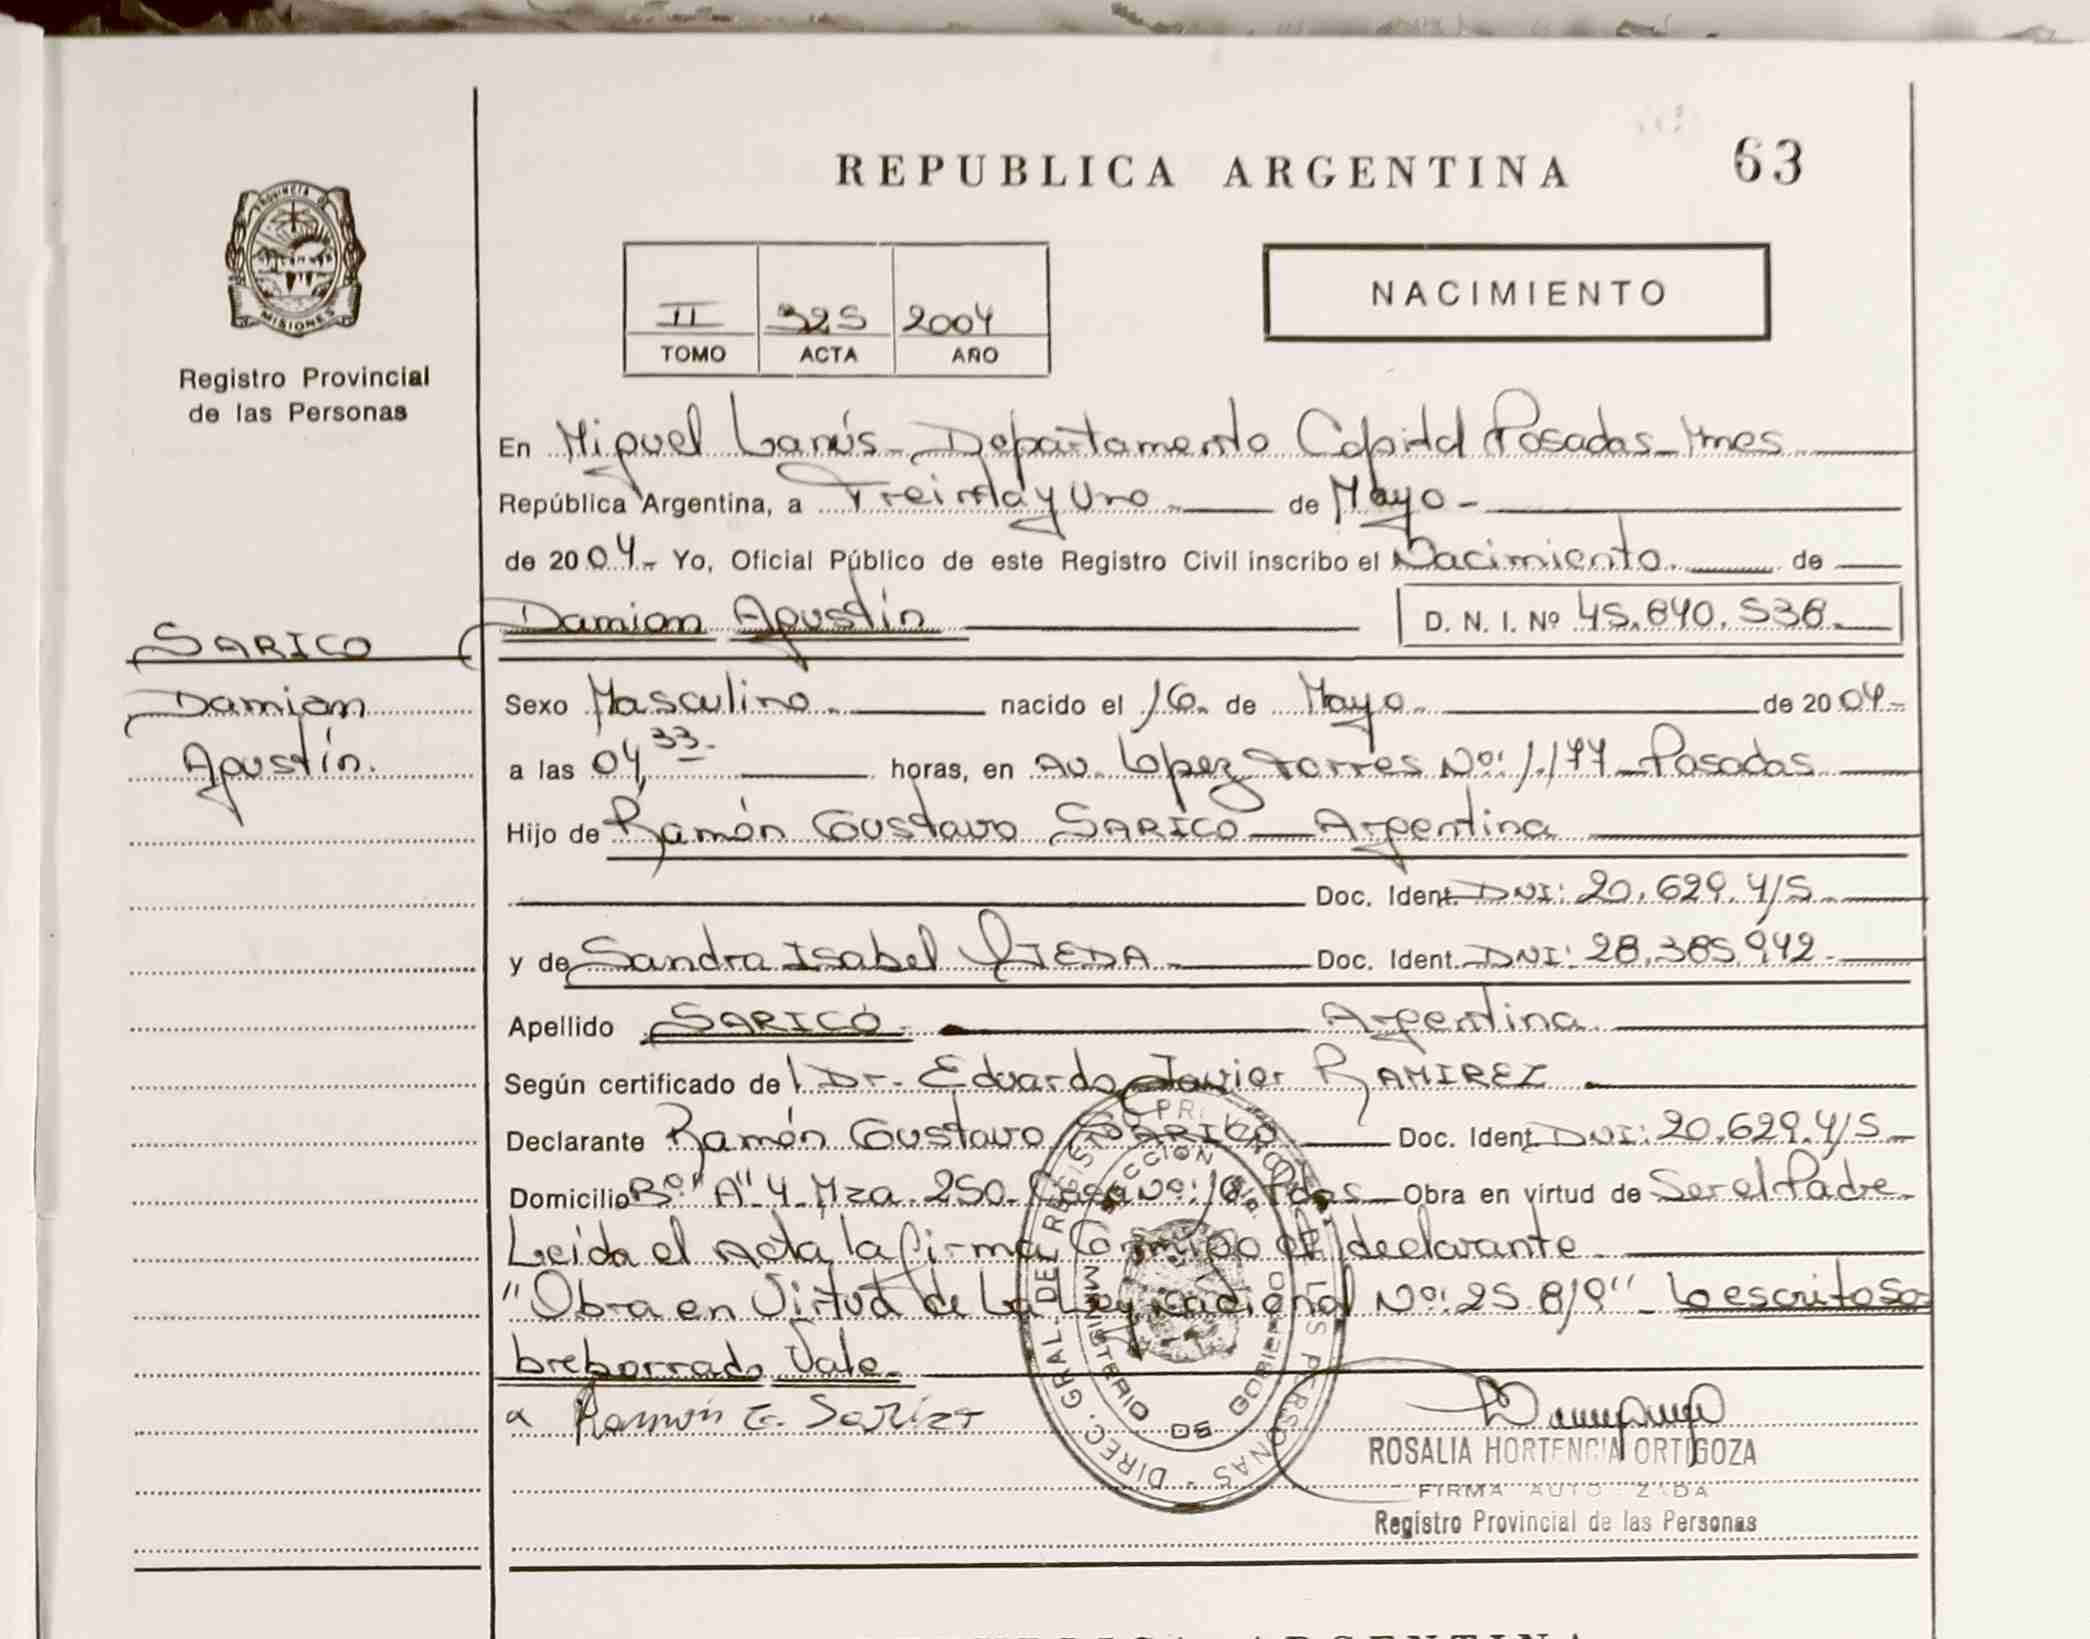 REPUBLICA ARGENTINA 63
PROVINCIA DE
MISIONES
Registro Provincial
de las Personas
II 325 2004
TOMO ACTA AÑO
NACIMIENTO
En Miguel Lanús - Departamento Capital Posadas - Mnes
República Argentina, a Treinta y Uno de Mayo -
de 2004.- Yo, Oficial Público de este Registro Civil inscribo el Nacimiento de
Damian Agustín D. N. I. Nº 45.840.538.
SARICO
Damian
Agustín.
Sexo Masculino. nacido el 16. de Mayo. de 2004.-
a las 04,33.- horas, en Av. López Torres Nº: 1.177 - Posadas
Hijo de Ramón Gustavo SARICO - Argentina
Doc. Ident. DNI: 20.629.415.-
y de Sandra Isabel OJEDA. Doc. Ident. DNI: 28.385.942.-
Apellido SARICO. Argentina
Según certificado del Dr. Eduardo Javier RAMIREZ
Declarante Ramón Gustavo SARICO Doc. Ident. DNI: 20.629.415.-
Domicilio Bº. "A" 4. Mza. 250. Casa Nº: 16 Pdas. Obra en virtud de Ser el Padre.
Leida el Acta la firma Conmigo el declarante.
"Obra en Virtud de La Ley Nacional Nº: 25.819" Lo escrito so-
breborrado Vale.
Ramón G. Sarico
DIREC. GRAL. DEL REGISTRO PROVINCIAL DE LAS PERSONAS
MINISTERIO DE GOBIERNO
ROSALIA HORTENCIA ORTIGOZA
FIRMA AUTORIZADA
Registro Provincial de las Personas
REPUBLICA ARGENTINA